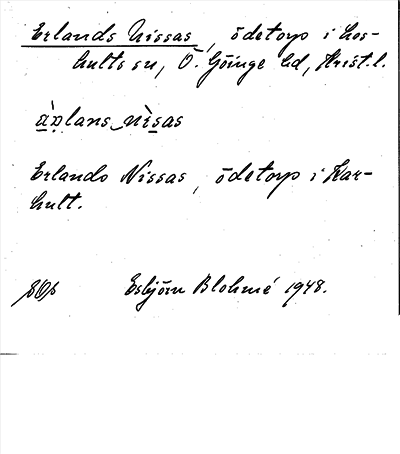 Erlands Nissas, ödetorp i Los-
hults sn, Ö. Göinge hd, Krist. l.
Erlands Nissas, ödetorp i Kar-
hult.
Esbjörn Blohmé 1948.